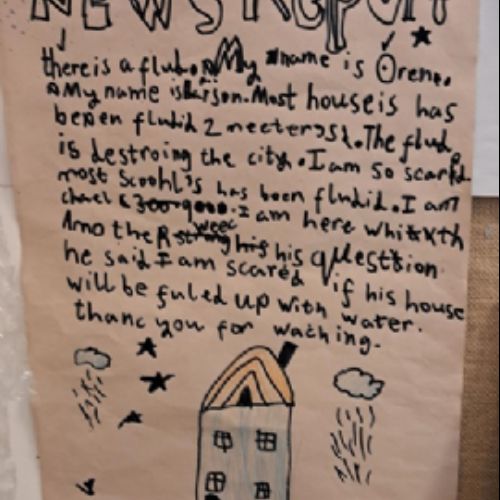 NEWS Report
there is a flud. My name is Orene.
My name is Larson. Most house is has
been fludid 2 mecters. The flud
is destroing the city. I am so scared
most Scoohl's has been fludid. I am
here whith
Ano the R his quesstion
he said I am scared if his house
will be fuled up with water.
thanc you for waching.